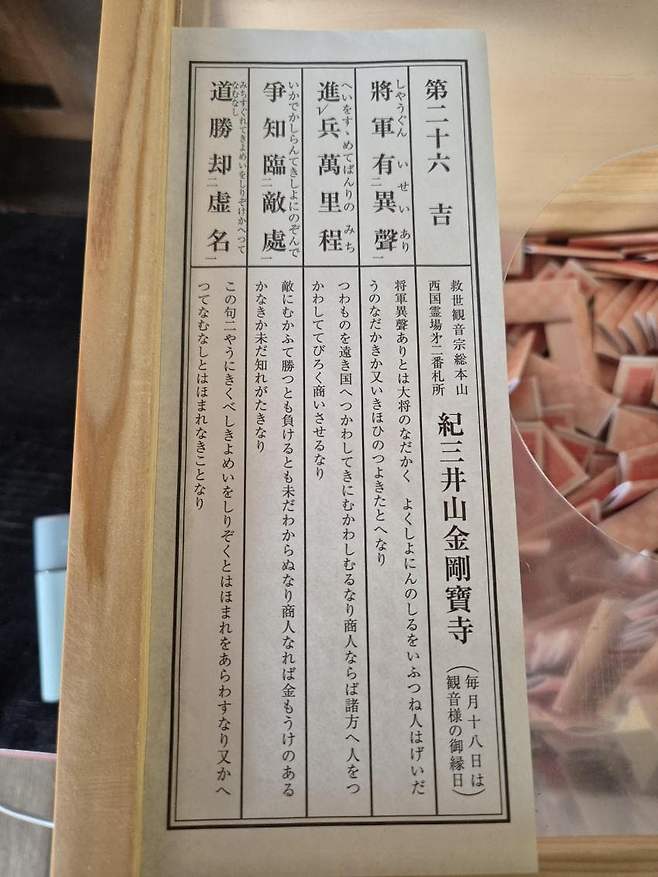 第二十六 吉
救世観音宗総本山
西国霊場㐧二番札所
紀三井山金剛寶寺
(毎月十八日は
観音様の御縁日)
しやうぐん いせい あり
將軍有二異聲一
将軍異聲ありとは大将のなだかく よくしよにんのしるをいふつね人はげいだ
うのなだかきか又いきほひのつよきたとへなり
へいをすゝめてばんりの みち
進レ兵萬里程
つわものを遠き国へつかわしてきにむかわしむるなり商人ならば諸方へ人をつ
かわしててびろく商いさせるなり
いかでかしらんてきしよにのぞんで
爭知臨二敵處一
敵にむかふて勝つとも負けるとも未だわからぬなり商人なれば金もうけのある
かなきか未だ知れがたきなり
みちすぐれてきよめいをしりぞけかへつて
なむなし
道勝却二虚名一
この句二やうにきくべしきよめいをしりぞくとはほまれをあらわすなり又かへ
つてなむなしとはほまれなきことなり